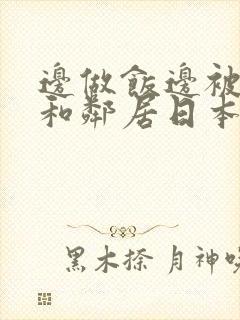 邊做飯邊被
和鄰居日本
黑木捺 月神